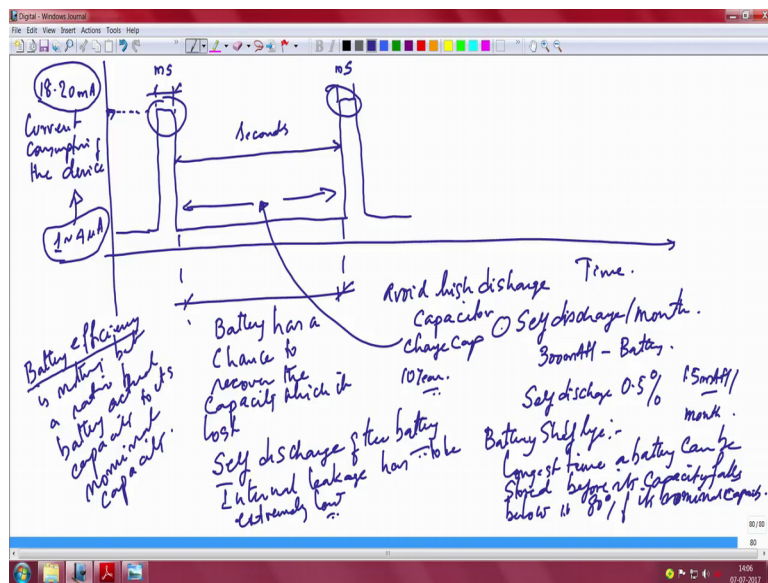 Digital - Windows Journal
File Edit View Insert Actions Tools Help
18-20mA
Current
the device
1~4µA
ms
ms
Seconds
Time.
Battery efficiency
is nothing but
a ratio of
battery actual
capacity to its
nominal
capacity.
Battery has a
Chance to
recover the
Capacity which it
lost
Self discharge of the battery
Internal leakage has to be
extremely low
Avoid high discharge
Capacitor
charge cap
10 Year.
Self discharge/month.
3000mAH - Battery.
Self discharge 0.5%
15mAH/
month.
Battery Shelf life:-
Longest time a battery can be
Stored before its Capacity falls
below it 80% of its nominal capacity.
80/80
80
14:06
07-07-2017